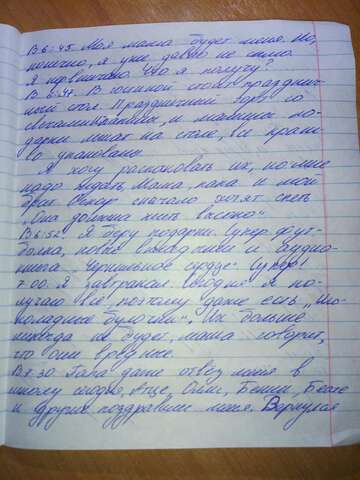 В 6:45 Моя мама будет меня. Но,
конечно, я уже давно не сплю.
Я нервничаю. Что я получу?
В 6:47. В кухонной стоит празднич-
ный стол. Праздничный торт со
и маленькие по-
дарки лежат на столе, все краси-
во упакованы.
Я хочу распаковать их, но мне
надо ждать. Мама, папа и мой
брат Оскар сначала хотят спеть
„Она должна жить высоко“
В 6:52. Я беру подарки. Супер фут-
болка, новые и аудио-
книга „Чернильное сердце“ Супер!
7.00. Я завтракаю. Сегодня я по-
лучаю всё поэтому даже есть „Шо-
коладные булочки“. Их больше
никогда не будет, мама говорит,
что они вреднее.
В 7.30. Папа даже отвез меня в
школу сегодня. Бенни,
и другие поздравили меня. Вернулся